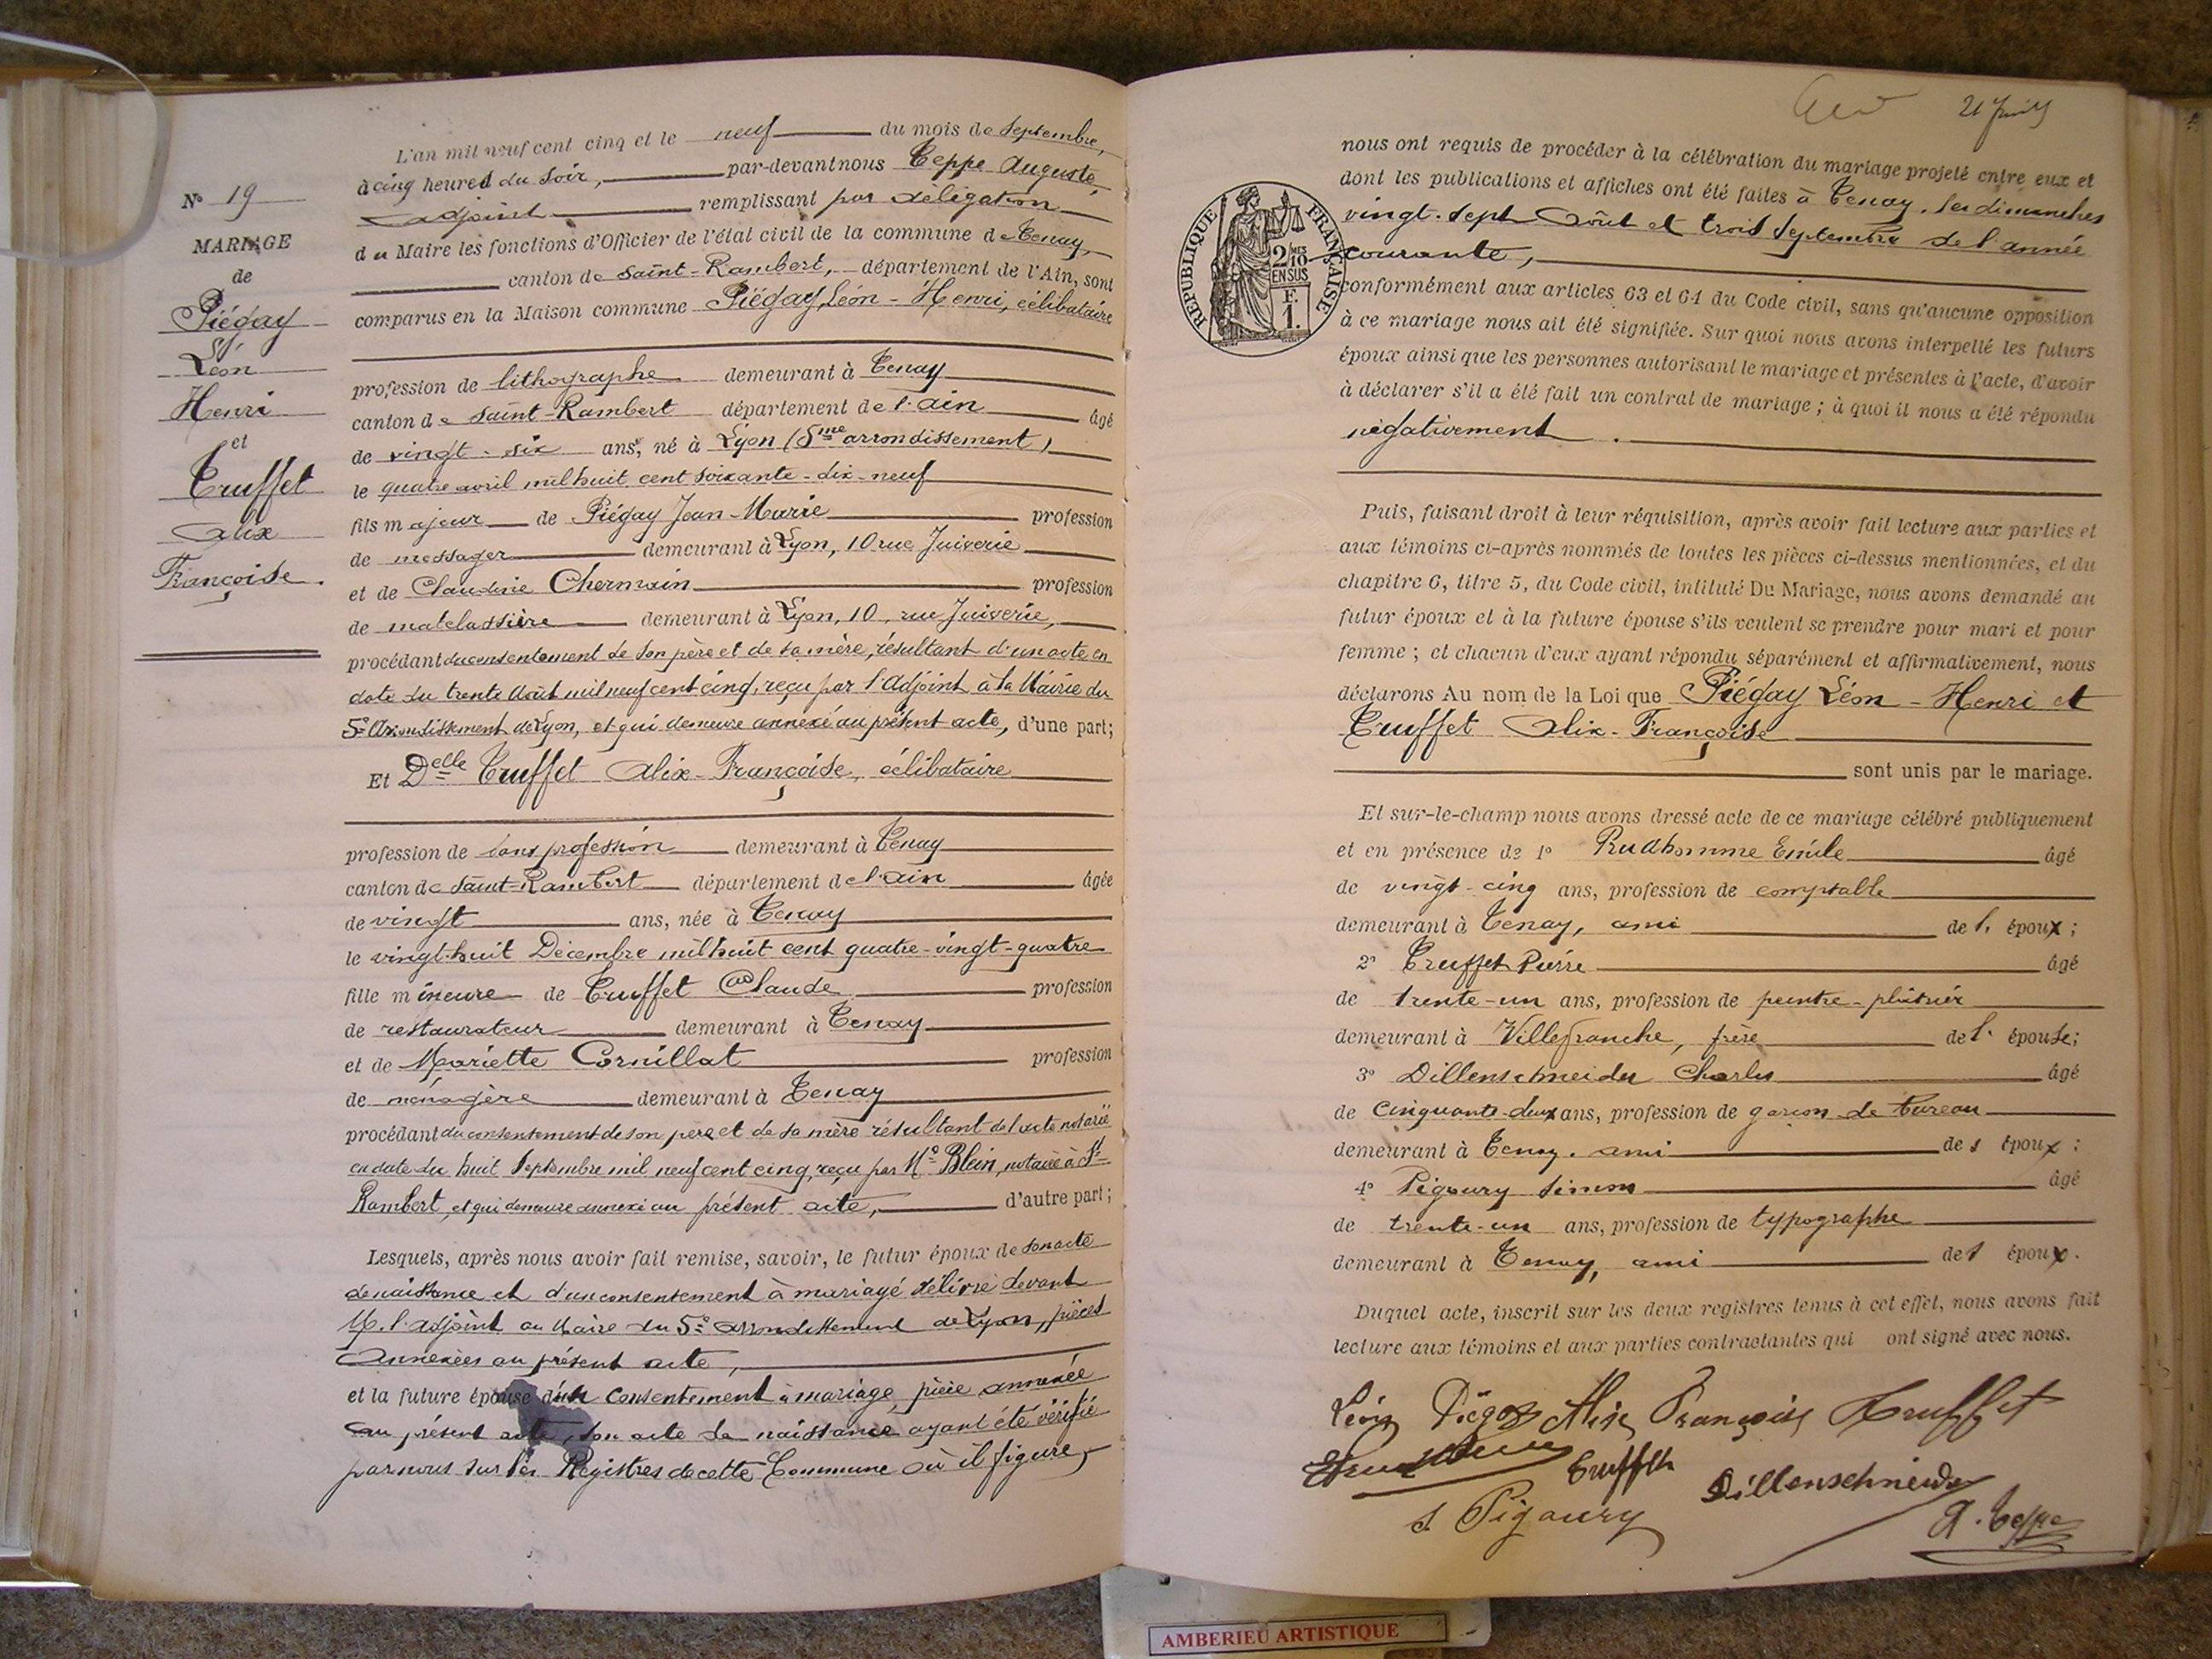 L'an mil neuf cent cinq et le neuf du mois de Septembre,
à cinq heures du soir, par-devant nous Teppe Auguste,
adjoint remplissant par délégation
du Maire les fonctions d'Officier de l'état civil de la commune de Tenay,
canton de Saint-Rambert, département de l'Ain, sont
comparus en la Maison commune Piégay Léon-Henri, célibataire
profession de lithographe demeurant à Tenay
canton de Saint-Rambert département de l'Ain âgé
de vingt-six ans, né à Lyon (5me arrondissement)
le quatre avril mil huit cent soixante-dix-neuf
fils majeur de Piégay Jean-Marie profession
de messager demeurant à Lyon, 10 rue Juiverie
et de Claudine Chermain profession
de matelassière demeurant à Lyon, 10, rue Juiverie,
procédant du consentement de son père et de sa mère, résultant d'un acte en
date du trente Août mil neuf cent cinq, reçu par l'Adjoint à la Mairie du
5e Arrondissement de Lyon, et qui demeure annexé au présent acte, d'une part;
Et Delle Truffet Alix-Françoise, célibataire
profession de sans profession demeurant à Tenay
canton de Saint-Rambert département de l'Ain âgée
de vingt ans, née à Tenay
le vingt-huit Décembre mil huit cent quatre-vingt-quatre
fille mineure de Truffet Claude profession
de restaurateur demeurant à Tenay
et de Mariette Cornillat profession
de ménagère demeurant à Tenay
procédant du consentement de son père et de sa mère résultant de l'acte notarié
en date du huit Septembre mil neuf cent cinq, reçu par Me Blein, notaire à St-
Rambert, et qui demeure annexé au présent acte, d'autre part;
Lesquels, après nous avoir fait remise, savoir, le futur époux de son acte
de naissance et d'un consentement à mariage délivré devant
M. l'adjoint au Maire du 5e arrondissement de Lyon, pièces
annexées au présent acte,
et la future épouse d'un consentement à mariage, pièce annexée
au présent acte, son acte de naissance ayant été vérifié
par nous sur les Registres de cette Commune où il figure,
N° 19
MARIAGE
de
Piégay
Léon
Henri
et
Truffet
Alix
Françoise.
21
nous ont requis de procéder à la célébration du mariage projeté entre eux et
dont les publications et affiches ont été faites à Tenay, les dimanches
vingt-sept Août et trois Septembre de l'année
courante,
conformément aux articles 63 et 64 du Code civil, sans qu'aucune opposition
à ce mariage nous ait été signifiée. Sur quoi nous avons interpellé les futurs
époux ainsi que les personnes autorisant le mariage et présentes à l'acte, d'avoir
à déclarer s'il a été fait un contrat de mariage; à quoi il nous a été répondu
négativement.
RÉPUBLIQUE FRANÇAISE
2/10MES
EN SUS
F.
1.
Puis, faisant droit à leur réquisition, après avoir fait lecture aux parties et
aux témoins ci-après nommés de toutes les pièces ci-dessus mentionnées, et du
chapitre 6, titre 5, du Code civil, intitulé Du Mariage, nous avons demandé au
futur époux et à la future épouse s'ils veulent se prendre pour mari et pour
femme; et chacun d'eux ayant répondu séparément et affirmativement, nous
déclarons Au nom de la Loi que Piégay Léon-Henri et
Truffet Alix-Françoise
sont unis par le mariage.
Et sur-le-champ nous avons dressé acte de ce mariage célébré publiquement
et en présence de 1° Prudhomme Emile âgé
de vingt-cinq ans, profession de comptable
demeurant à Tenay, ami de l' époux;
2° Truffet Pierre âgé
de trente-un ans, profession de peintre-plâtrier
demeurant à Villefranche, frère de l' épouse;
3° Dillenschneider Charles âgé
de cinquante-deux ans, profession de garçon de bureau
demeurant à Tenay, ami des époux;
4° Pigoury Simon âgé
de trente-un ans, profession de typographe
demeurant à Tenay, ami de l' époux.
Duquel acte, inscrit sur les deux registres tenus à cet effet, nous avons fait
lecture aux témoins et aux parties contractantes qui ont signé avec nous.
Léon Piégay Alix Françoise Truffet
Truffet Dillenschneider
S. Pigoury A. Teppe
AMBERIEU ARTISTIQUE